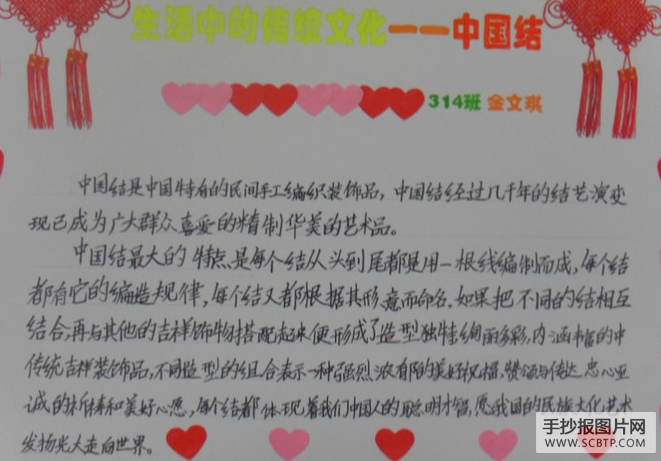 生活中的传统文化——中国结
314班 金文琪
中国结是中国特有的民间手工编织装饰品，中国结经过几千年的结艺演变
现已成为广大群众喜爱的精制华美的艺术品。
中国结最大的特点是每个结从头到尾都是用一根线编制而成，每个结
都有它的编造规律，每个结又都根据其形、意而命名。如果把不同的结相互
结合，再与其他的吉祥饰物搭配起来便形成了造型独特绚丽多彩，内涵丰富的中
传统吉祥装饰品，不同造型的组合表示一种强烈浓郁的美好祝福，赞颂与传达忠心至
诚的祈祷和美好心愿，每个结都体现着我们中国人的聪明才智，愿我国的民族文化艺术
发扬光大走向世界。
手抄报图片网
WWW.SCBTP.COM